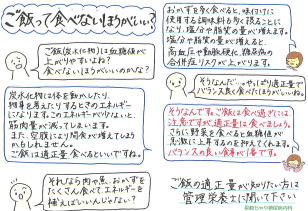 ご飯って食べないほうがいい？
ご飯(炭水化物)は血糖値が
上がりやすいよね？
食べないほうがいいのかな？
炭水化物は体を動かしたり、
物事を考えたりするときのエネルギー
になります。このエネルギーが少ないと、
筋肉量が減ってしまいます。
また、空腹により間食が増えてしまう
かもしれません。
ご飯は適正量食べるといいですね。
それなら肉や魚、おかずを
たくさん食べて、エネルギーを
補えばいいんじゃない？
おかずを多く食べると、味付けに
使用する調味料も多く摂ることに
なり、塩分や脂質の量が増えます。
塩分や脂質の量が増えると、
高血圧や動脈硬化、糖尿病の
合併症リスクが上がります。
そうなんだ…やっぱり適正量で
バランス良く食べたほうがいいね。
そうなんです。ご飯は食べ過ぎには
注意ですが適正量は食べましょう。
さらに野菜を食べると血糖値が
急激に上昇するのを抑えてくれます。
バランスの良い食事が1番です。
ご飯の適正量が知りたい方は
管理栄養士に聞いて下さい